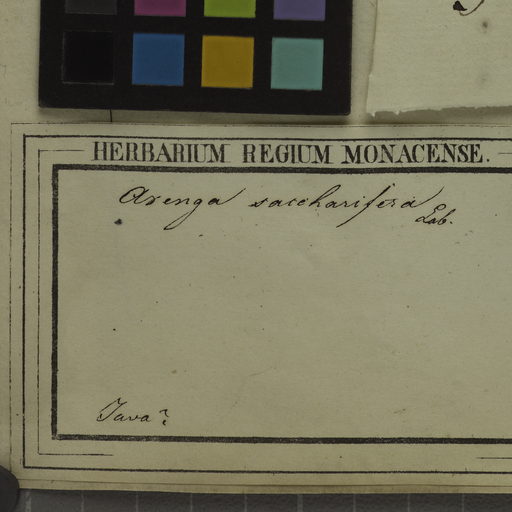 HERBARIUM REGIUM MONACENSE.
Arenga saccharifera
Lab.
Java?